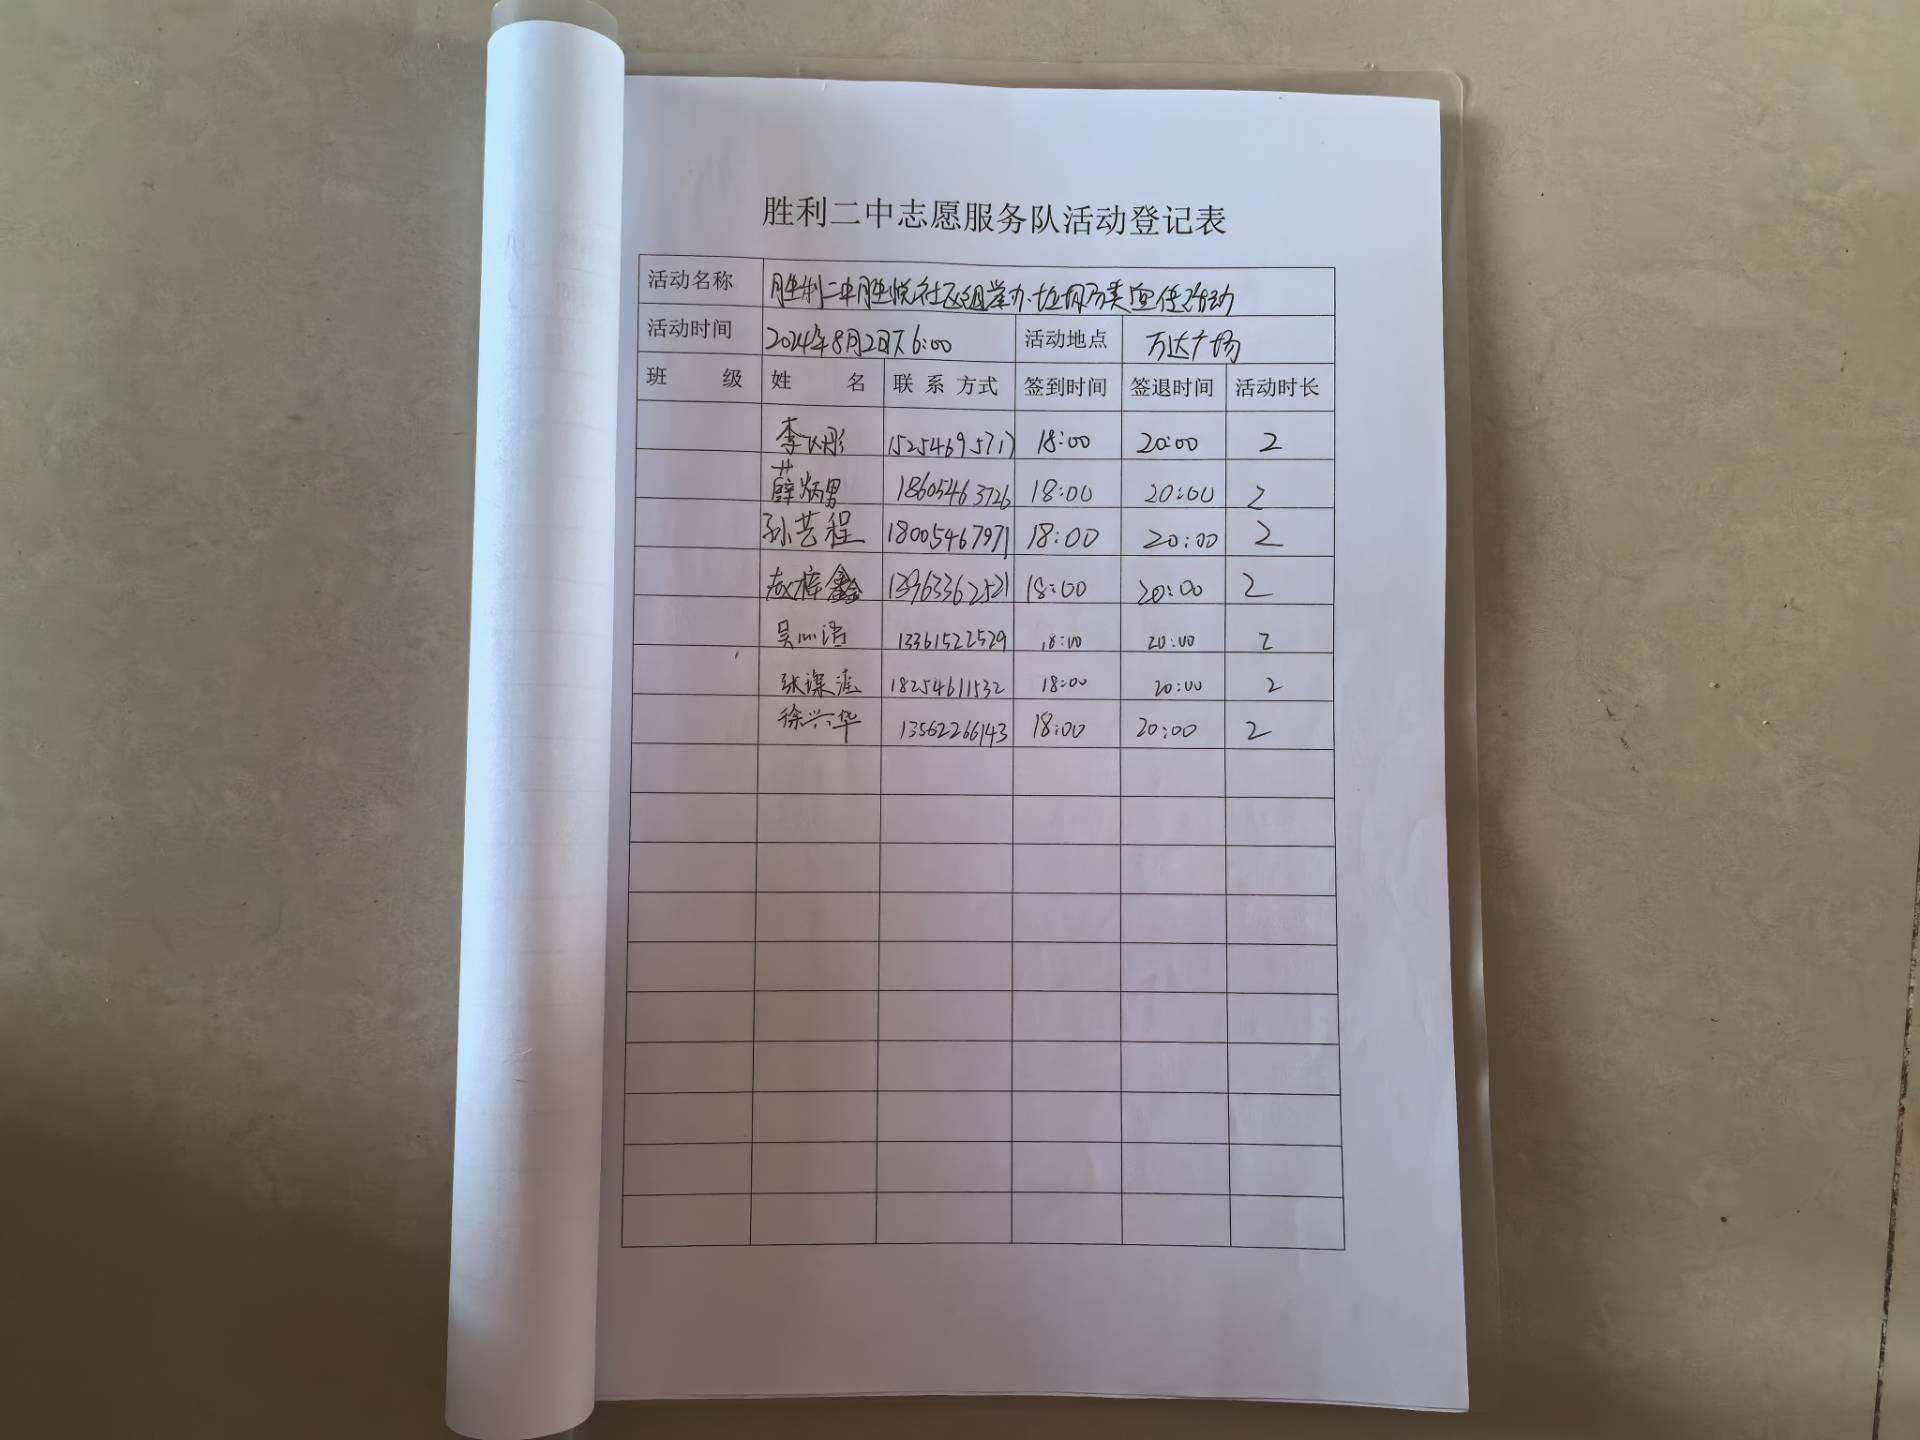 胜利二中志愿服务队活动登记表
活动名称 胜利二中胜悦社区组举办垃圾分类宣传活动
活动时间 2024年8月2日下6:00 活动地点 万达广场
班 级 姓 名 联 系 方式 签到时间 签退时间 活动时长
李飞彤 15254695717 18:00 20:00 2
薛炳男 18605463726 18:00 20:00 2
孙艺程 18005467971 18:00 20:00 2
赵梓鑫 13963362521 18:00 20:00 2
吴 13361522529 18:00 20:00 2
张 18254611532 18:00 20:00 2
徐兴华 13562266143 18:00 20:00 2